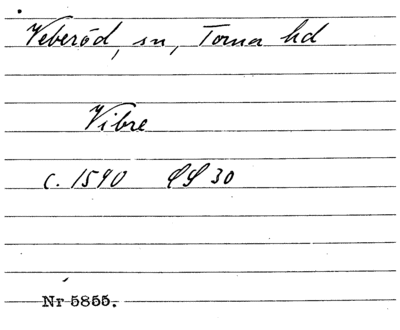 Veberöd, sn, Torna hd
Vibre
c. 1590 LS 30
Nr 5855.